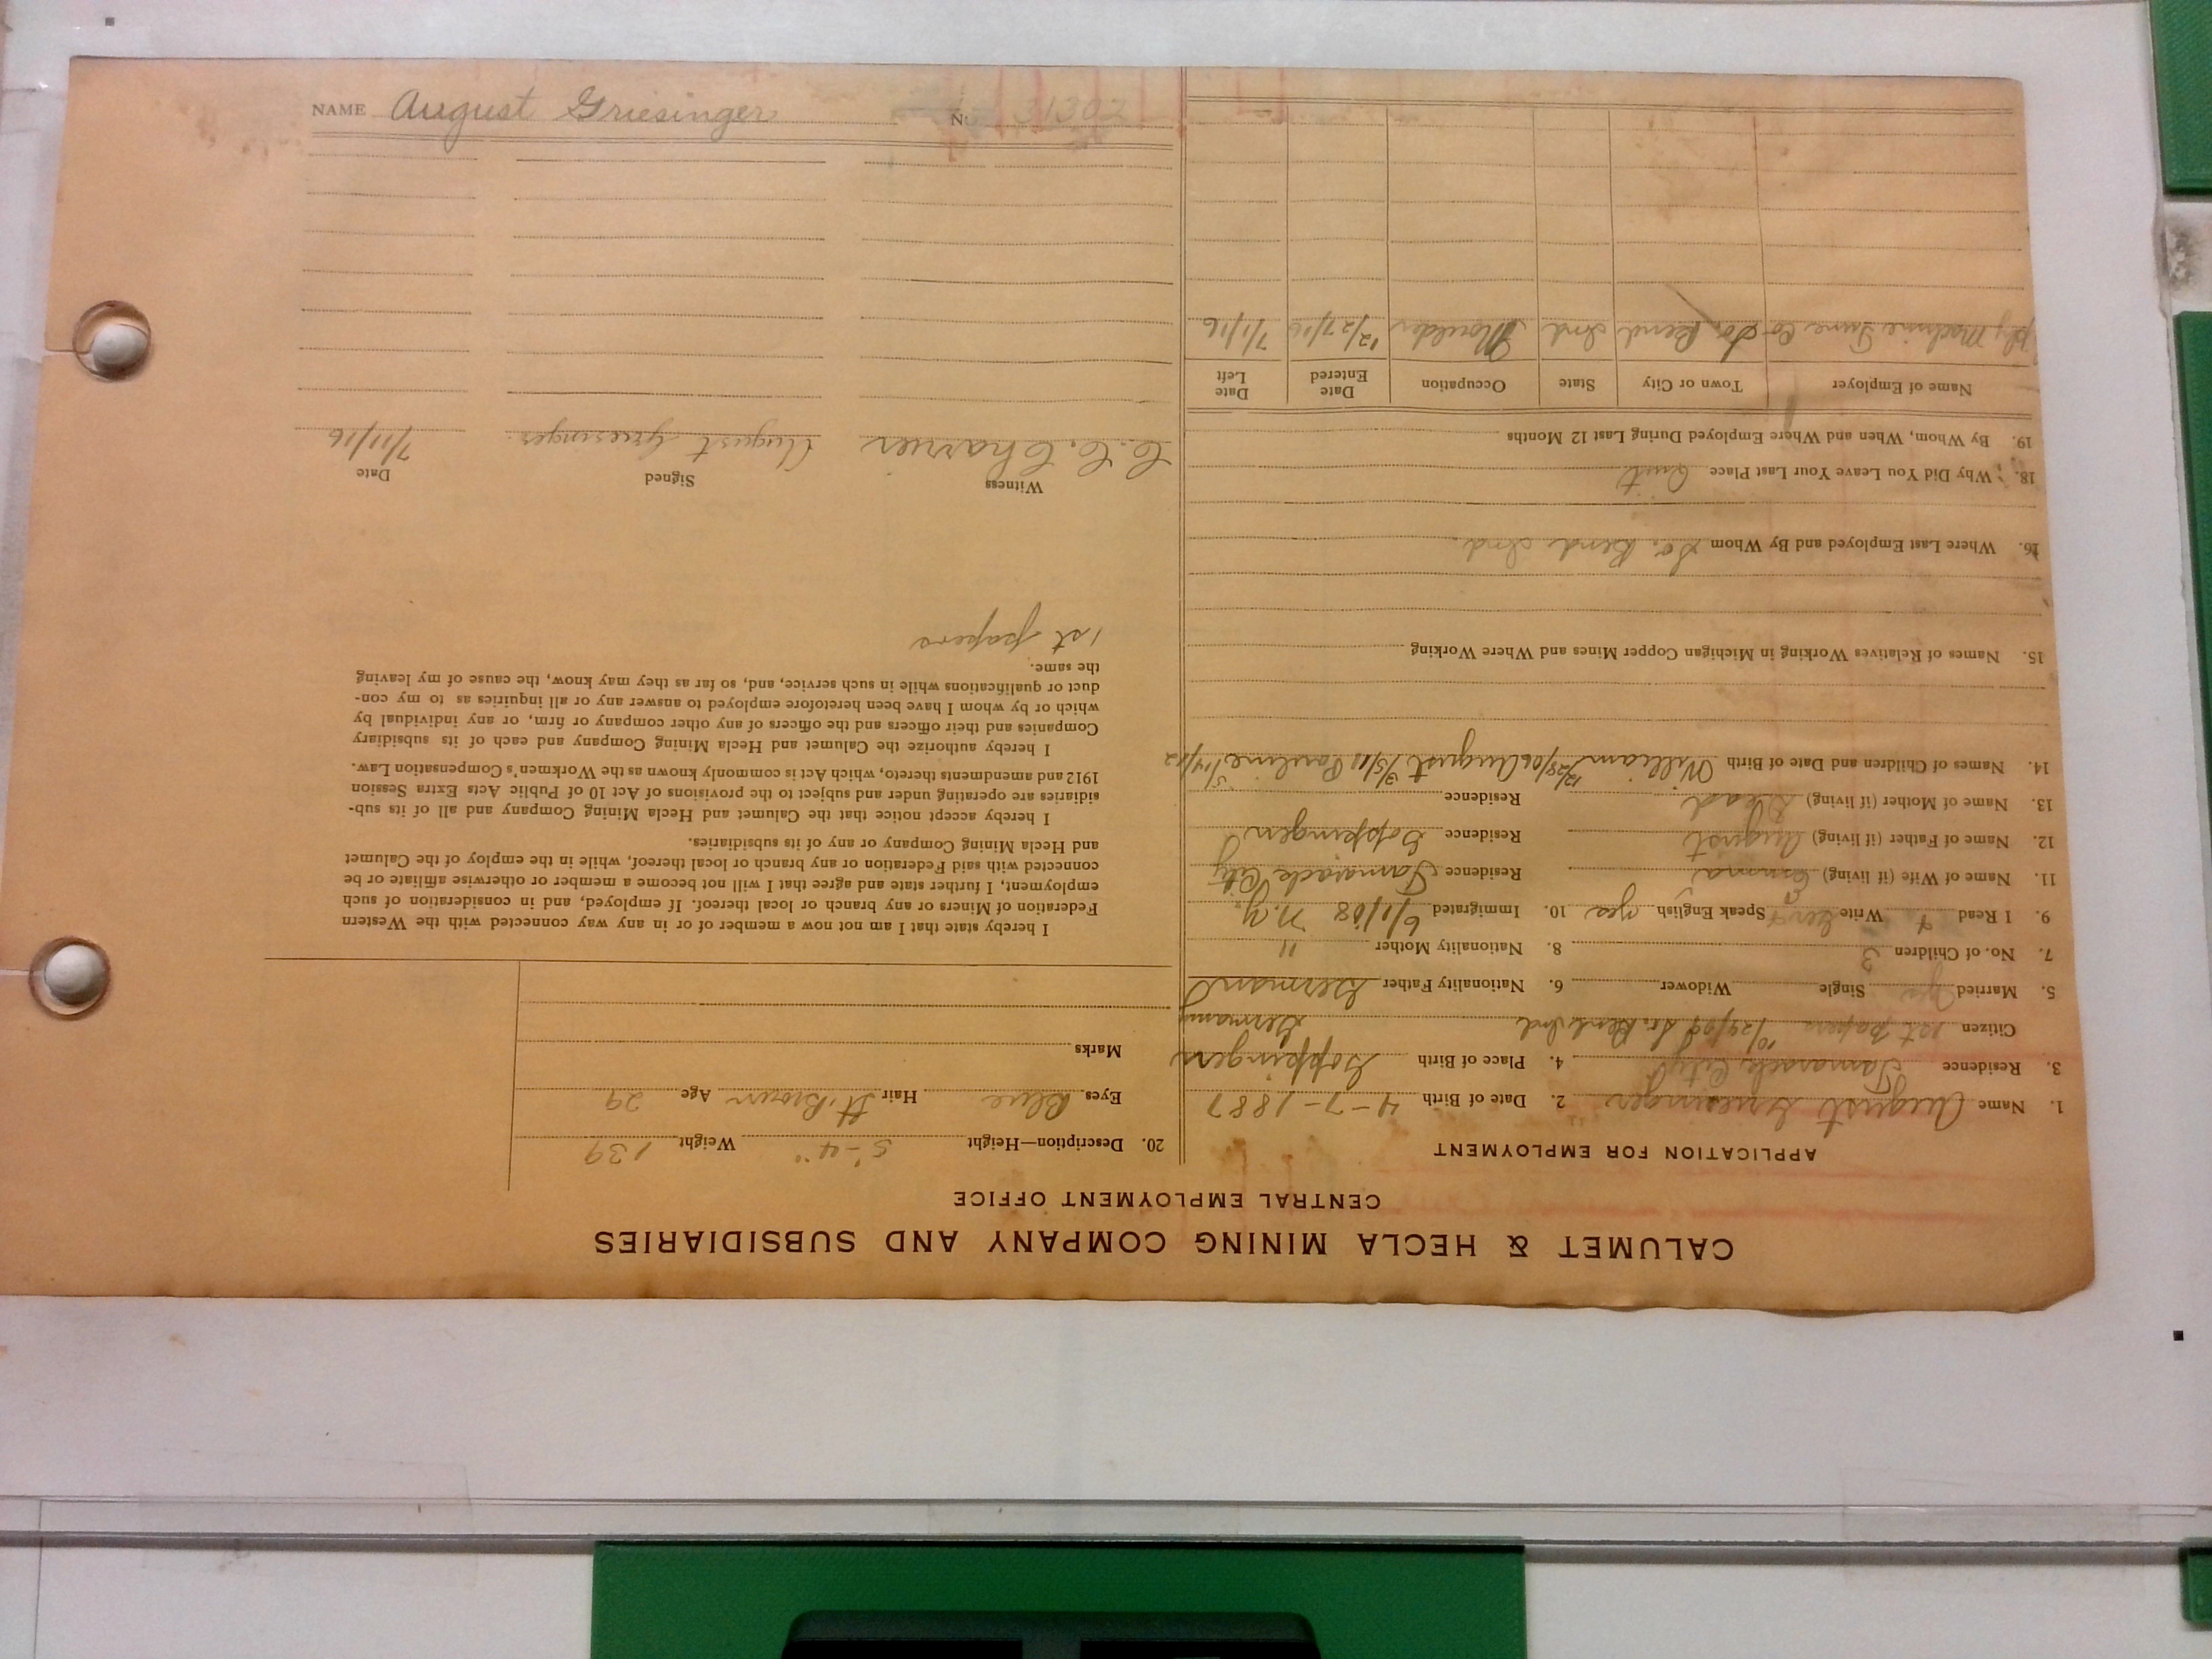 CALUMET & HECLA MINING COMPANY AND SUBSIDIARIES
CENTRAL EMPLOYMENT OFFICE
APPLICATION FOR EMPLOYMENT
1. Name August Griesinger 2. Date of Birth 4-7-1887
3. Residence Tamarack City 4. Place of Birth Goppingen
Citizen 1st papers 10/29/09 So. Bend Ind Germany
5. Married yes Single Widower 6. Nationality Father German
7. No. of Children 3 8. Nationality Mother "
9. I Read + Write Ger + Speak English yes 10. Immigrated 6/1/08 N.Y.
11. Name of Wife (if living) Emma Residence Tamarack City
12. Name of Father (if living) August Residence Goppingen
13. Name of Mother (if living) Dead Residence
14. Names of Children and Date of Birth William 12/28/06 August Pauline 3/14/12
15. Names of Relatives Working in Michigan Copper Mines and Where Working
16. Where Last Employed and By Whom So. Bend Ind.
18. Why Did You Leave Your Last Place Quit
19. By Whom, When and Where Employed During Last 12 Months
Name of Employer Town or City State Occupation Date Entered Date Left
Machine Co So. Bend Ind Moulder 7/1/16
20. Description—Height 5'-4" Weight 139
Eyes Blue Hair lt. Brown Age 29
Marks
I hereby state that I am not now a member of or in any way connected with the Western
Federation of Miners or any branch or local thereof. If employed, and in consideration of such
employment, I further state and agree that I will not become a member or otherwise affiliate or be
connected with said Federation or any branch or local thereof, while in the employ of the Calumet
and Hecla Mining Company or any of its subsidiaries.
I hereby accept notice that the Calumet and Hecla Mining Company and all of its sub-
sidiaries are operating under and subject to the provisions of Act 10 of Public Acts Extra Session
1912 and amendments thereto, which Act is commonly known as the Workmen's Compensation Law.
I hereby authorize the Calumet and Hecla Mining Company and each of its subsidiary
Companies and their officers and the officers of any other company or firm, or any individual by
which or by whom I have been heretofore employed to answer any or all inquiries as to my con-
duct or qualifications while in such service, and, so far as they may know, the cause of my leaving
the same.
1st papers
Witness Signed Date
C. C. Charrier August Griesinger 7/11/16
NAME August Griesinger No. 31302